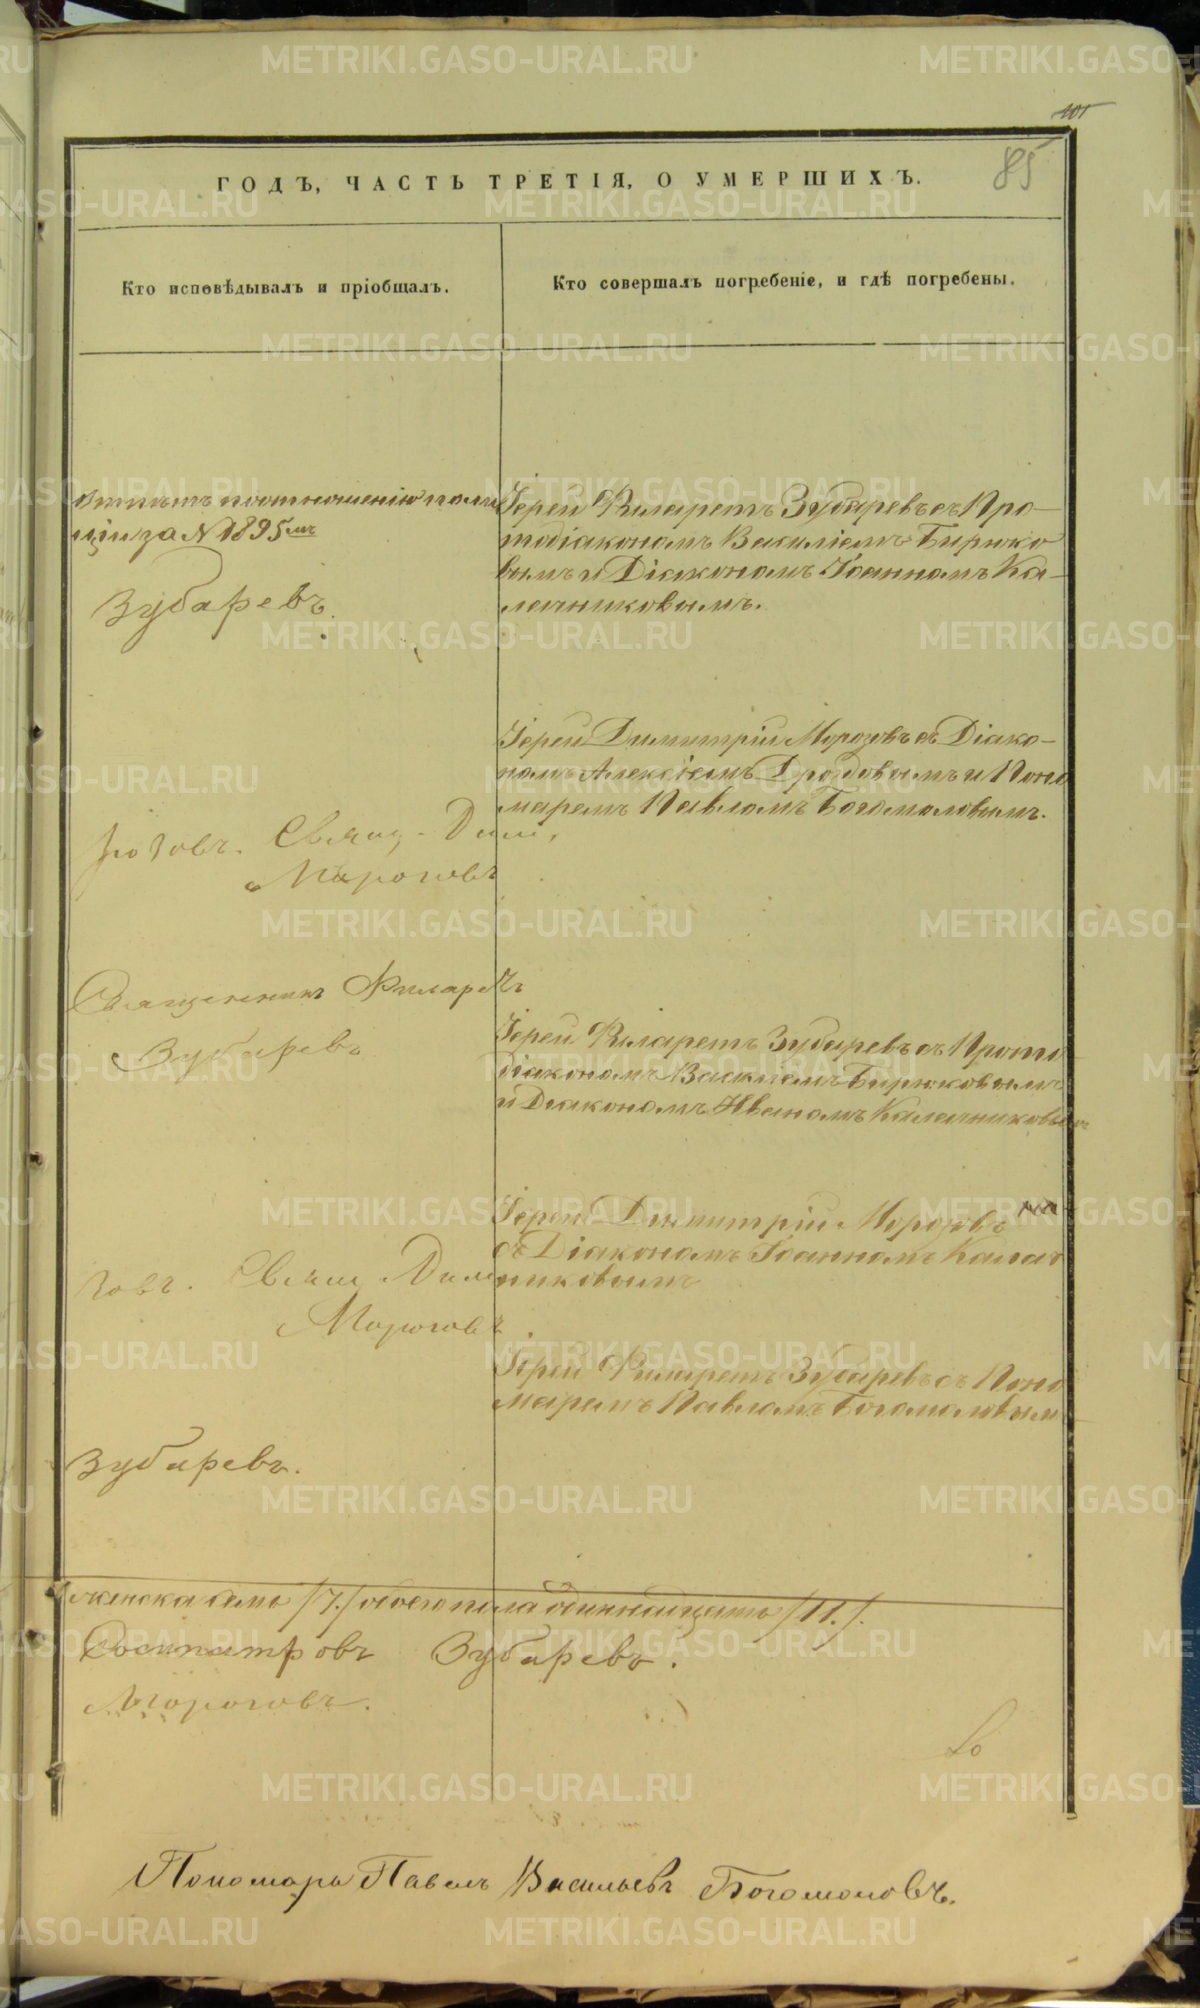 101
85
ГОДЪ, ЧАСТЬ ТРЕТІЯ, О УМЕРШИХЪ.
Кто исповѣдывалъ и пріобщалъ.
Кто совершалъ погребеніе, и гдѣ погребены.
Отпѣтъ поотношенію поли
ціи за № 1895мъ
Зубаревъ.
Іерей Филаретъ Зубаревъ съ Про-
тодіакономъ Василіемъ Бирюко
вымъ и Діакономъ Іоанномъ Ка-
лачниковымъ.
Іерей Димитрій Морозовъ съ Діако-
номъ Алексіемъ Дроздовымъ и Поно
маремъ Павломъ Богомоловымъ.
Свящ. Дим.
Морозовъ
Священникъ Филаретъ
Зубаревъ
Іерей Филаретъ Зубаревъ съ Прото
діакономъ Василіемъ Бирюковымъ
и Діакономъ Иваномъ Калачниковымъ
Іерей Димитрій Морозовъ
съ Діакономъ Іоанномъ Калач
никовымъ
зовъ. Свящ. Дим
Морозовъ
Іерей Филаретъ Зубаревъ съ Поно
маремъ Павломъ Богомоловым
Зубаревъ.
женска семь /7./ обоего пола одиннадцать /11./.
Сосипатровъ Зубаревъ.
Морозовъ.
Пономарь Павелъ Васильевъ Богомоловъ.
METRIKI.GASO-URAL.RU